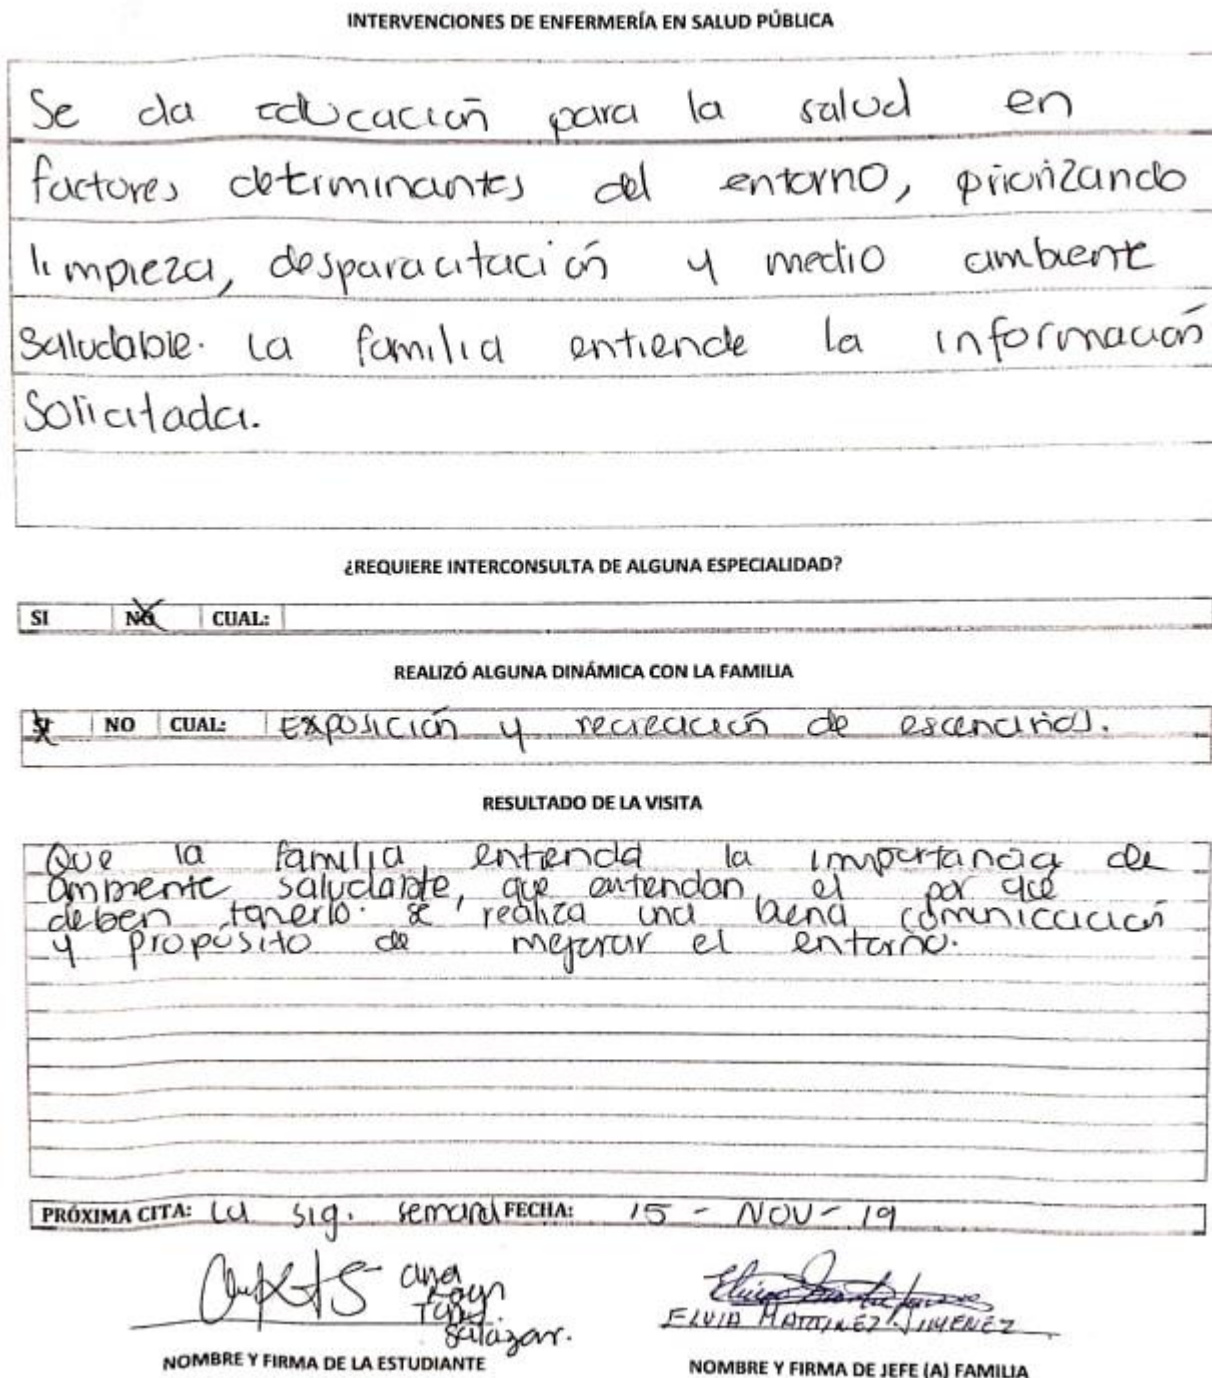 INTERVENCIONES DE ENFERMERÍA EN SALUD PÚBLICA
Se da educación para la salud en
factores determinantes del entorno, priorizando
limpieza, desparacitación y medio ambiente
saludable. La familia entiende la información
Solicitada.
¿REQUIERE INTERCONSULTA DE ALGUNA ESPECIALIDAD?
SI NO CUAL:
REALIZÓ ALGUNA DINÁMICA CON LA FAMILIA
SI NO CUAL: Exposición y recreación de escenarios.
RESULTADO DE LA VISITA
Que la familia entienda la importancia de
ambiente saludable, que entiendan el por qué
deben tenerlo. se realiza una buena comunicación
y propósito de mejorar el entorno.
PRÓXIMA CITA: La sig. semana FECHA: 15 - NOV - 19
Ana
Salazar.
ELVIA MARTINEZ JIMENEZ
NOMBRE Y FIRMA DE LA ESTUDIANTE NOMBRE Y FIRMA DE JEFE (A) FAMILIA